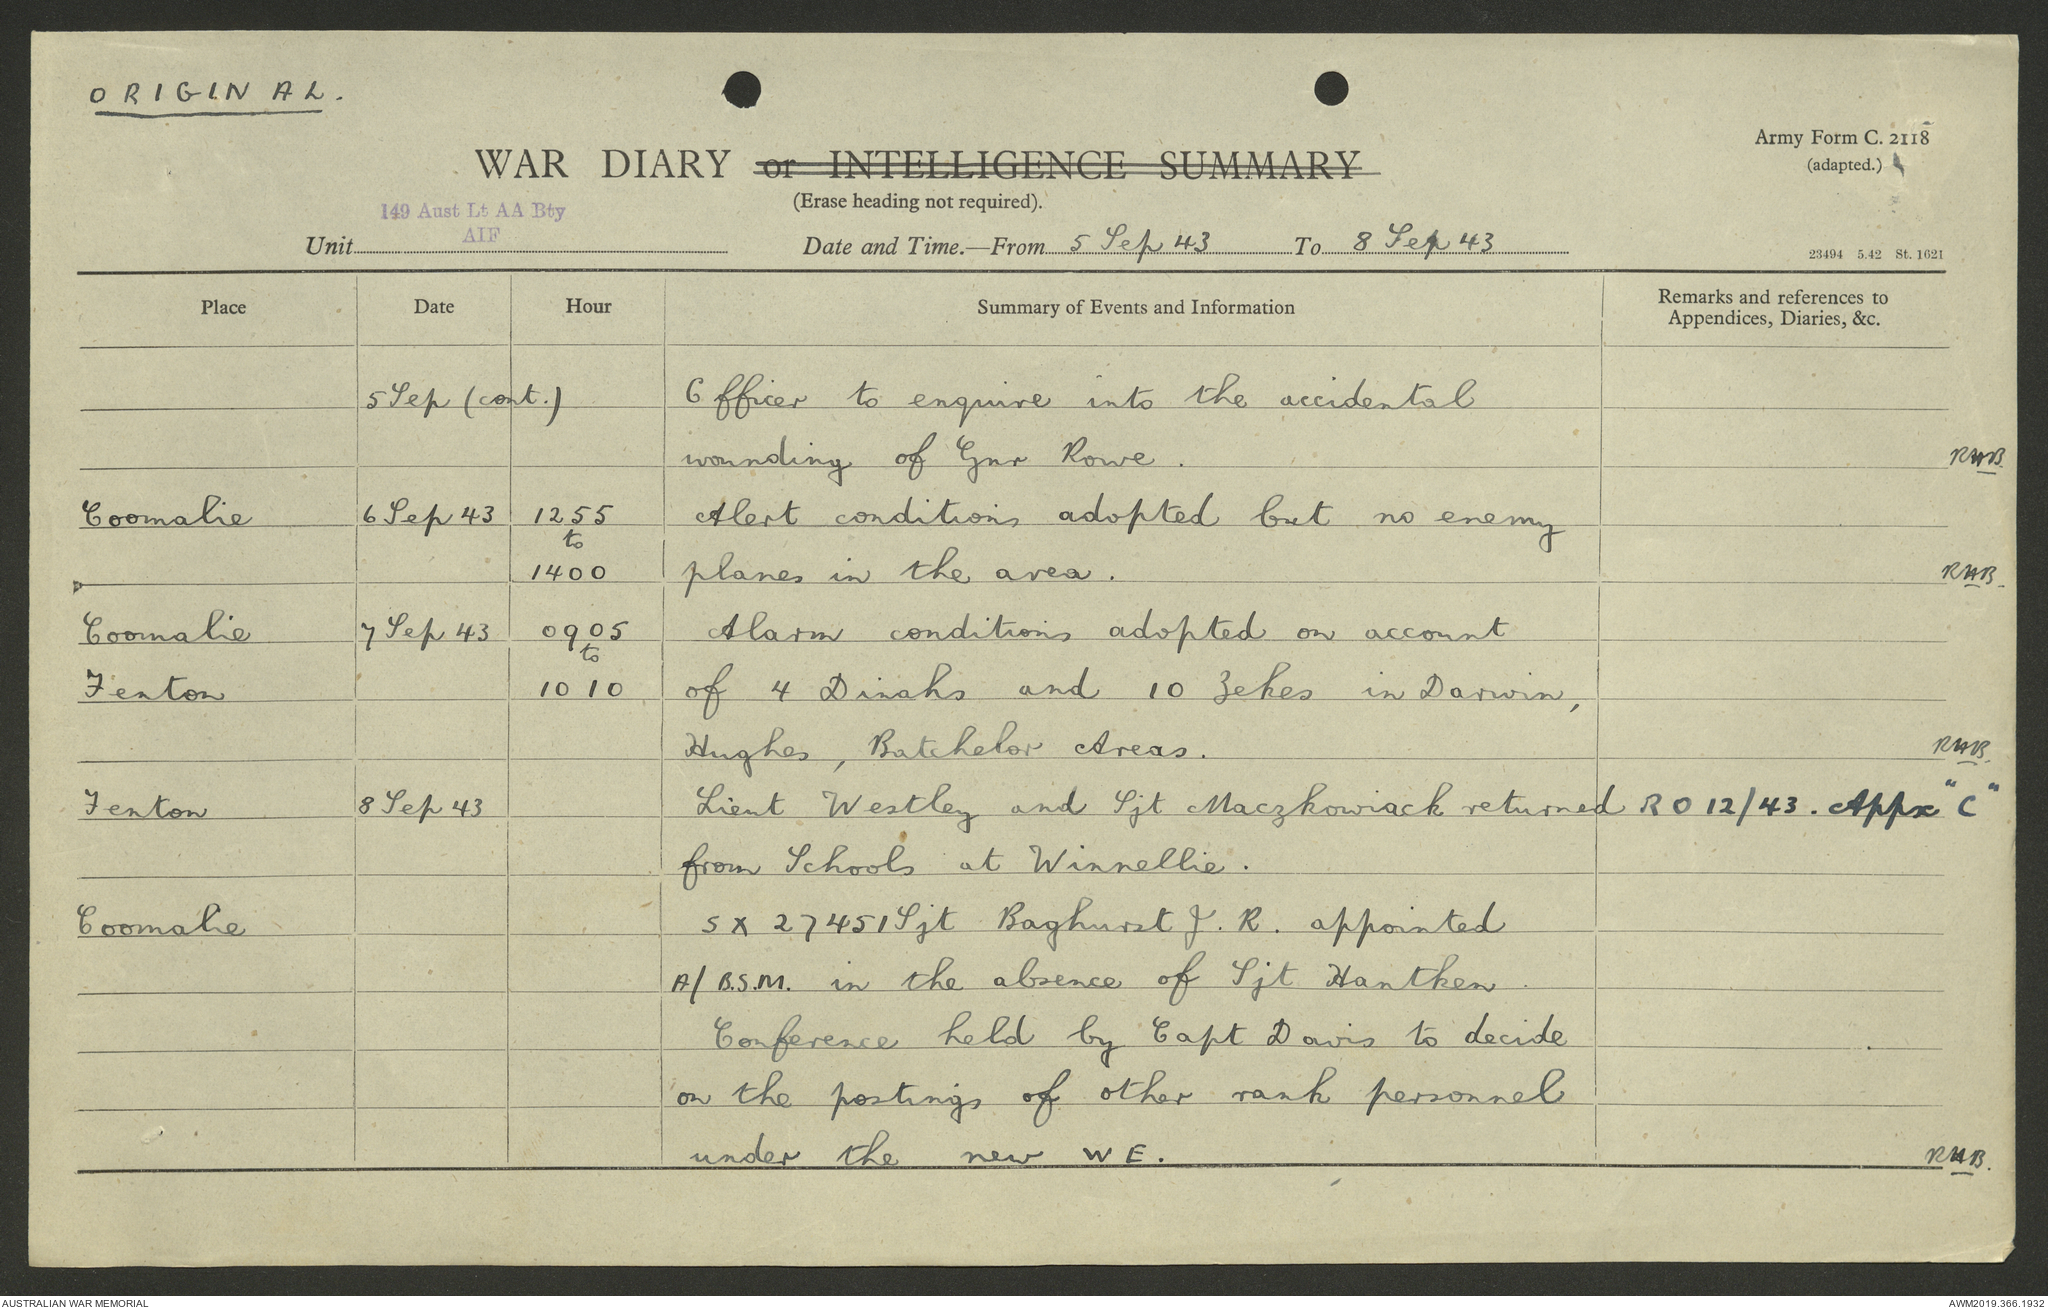 ORIGINAL.
WAR DIARY or INTELLIGENCE SUMMARY
(Erase heading not required).
Army Form C. 2118
(adapted.)
149 Aust Lt AA Bty
AIF
Unit
Date and Time.—From 5 Sep 43 To 8 Sep 43
23494 5.42 St. 1621
Place Date Hour Summary of Events and Information Remarks and references to
Appendices, Diaries, &c.
5 Sep (cont.) Officer to enquire into the accidental
wounding of Gnr Rowe. RHB.
Coomalie 6 Sep 43 1255 Alert conditions adopted but no enemy
to
1400 planes in the area. RHB.
Coomalie 7 Sep 43 0905 Alarm conditions adopted on account
to
Fenton 1010 of 4 Dinahs and 10 Zekes in Darwin,
Hughes, Batchelor Areas. RHB.
Fenton 8 Sep 43 Lieut Westley and Sjt Maczkowiack returned RO 12/43. Appx "C"
from Schools at Winnellie.
Coomalie SX 27451 Sjt Baghurst J. R. appointed
A/B.S.M. in the absence of Sjt Hantken.
Conference held by Capt Davis to decide
on the postings of other rank personnel
under the new WE. RHB.
AUSTRALIAN WAR MEMORIAL AWM2019.366.1932